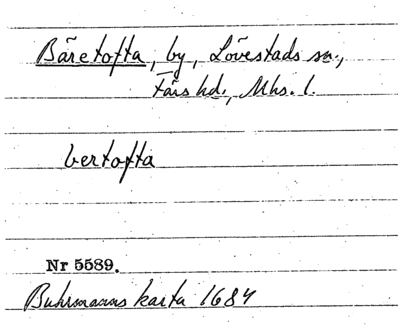 Bäretofta, by, Lövestads sn.,
Färs hd., Mhs. l.
bertofta
Nr 5589.
Buhrmanns karta 1684